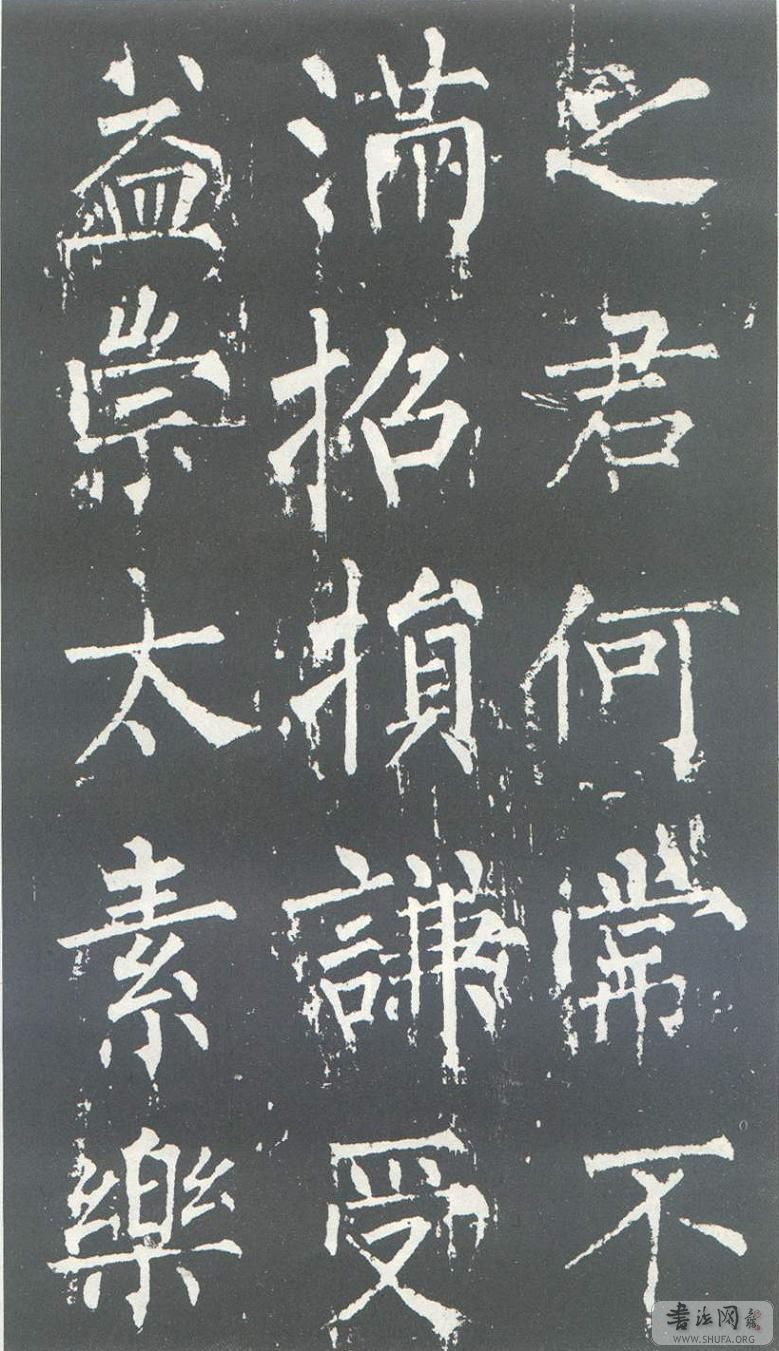 之君何常不
滿招損謙受
益崇太素樂
書法网
WWW.SHUFA.ORG